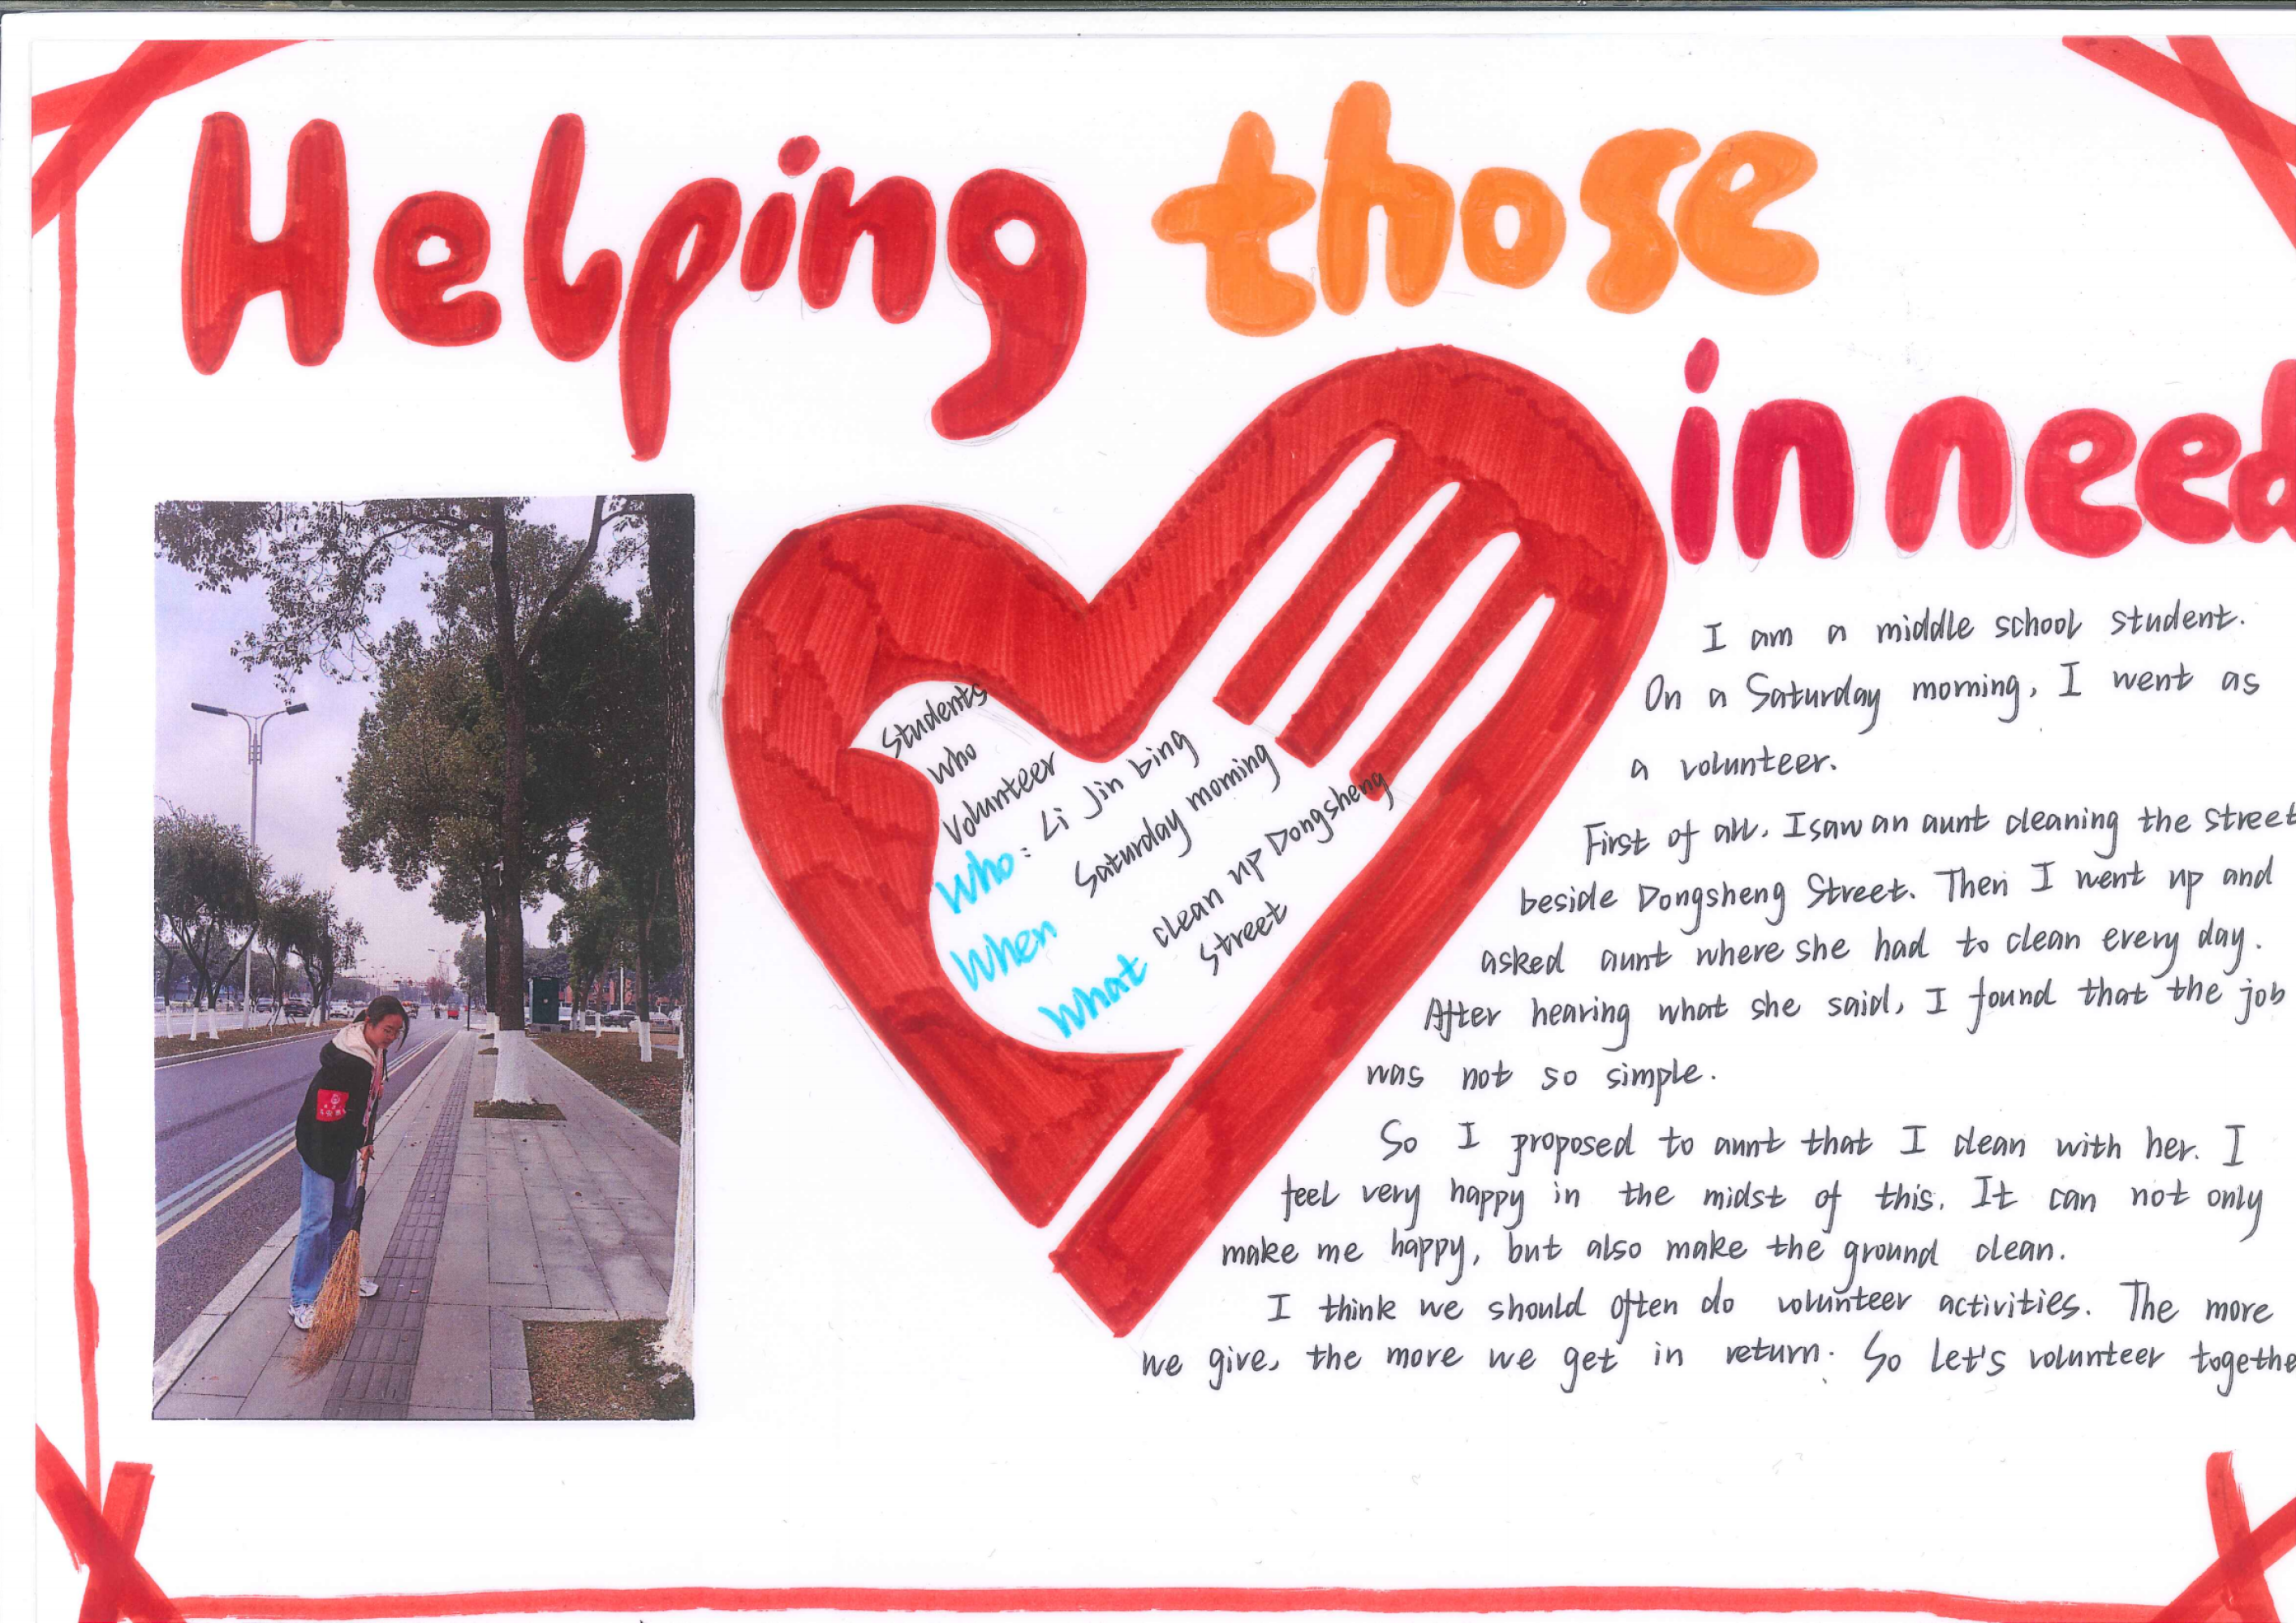 Helping those
in need
Students
who
Volunteer
Who: Li Jin bing
When Saturday morning
What clean up Dongsheng
Street
I am a middle school student.
On a Saturday morning, I went as
a volunteer.
First of all, I saw an aunt cleaning the street
beside Dongsheng Street. Then I went up and
asked aunt where she had to clean every day.
After hearing what she said, I found that the job
was not so simple.
So I proposed to aunt that I clean with her. I
feel very happy in the midst of this. It can not only
make me happy, but also make the ground clean.
I think we should often do volunteer activities. The more
we give, the more we get in return. So Let's volunteer togethe